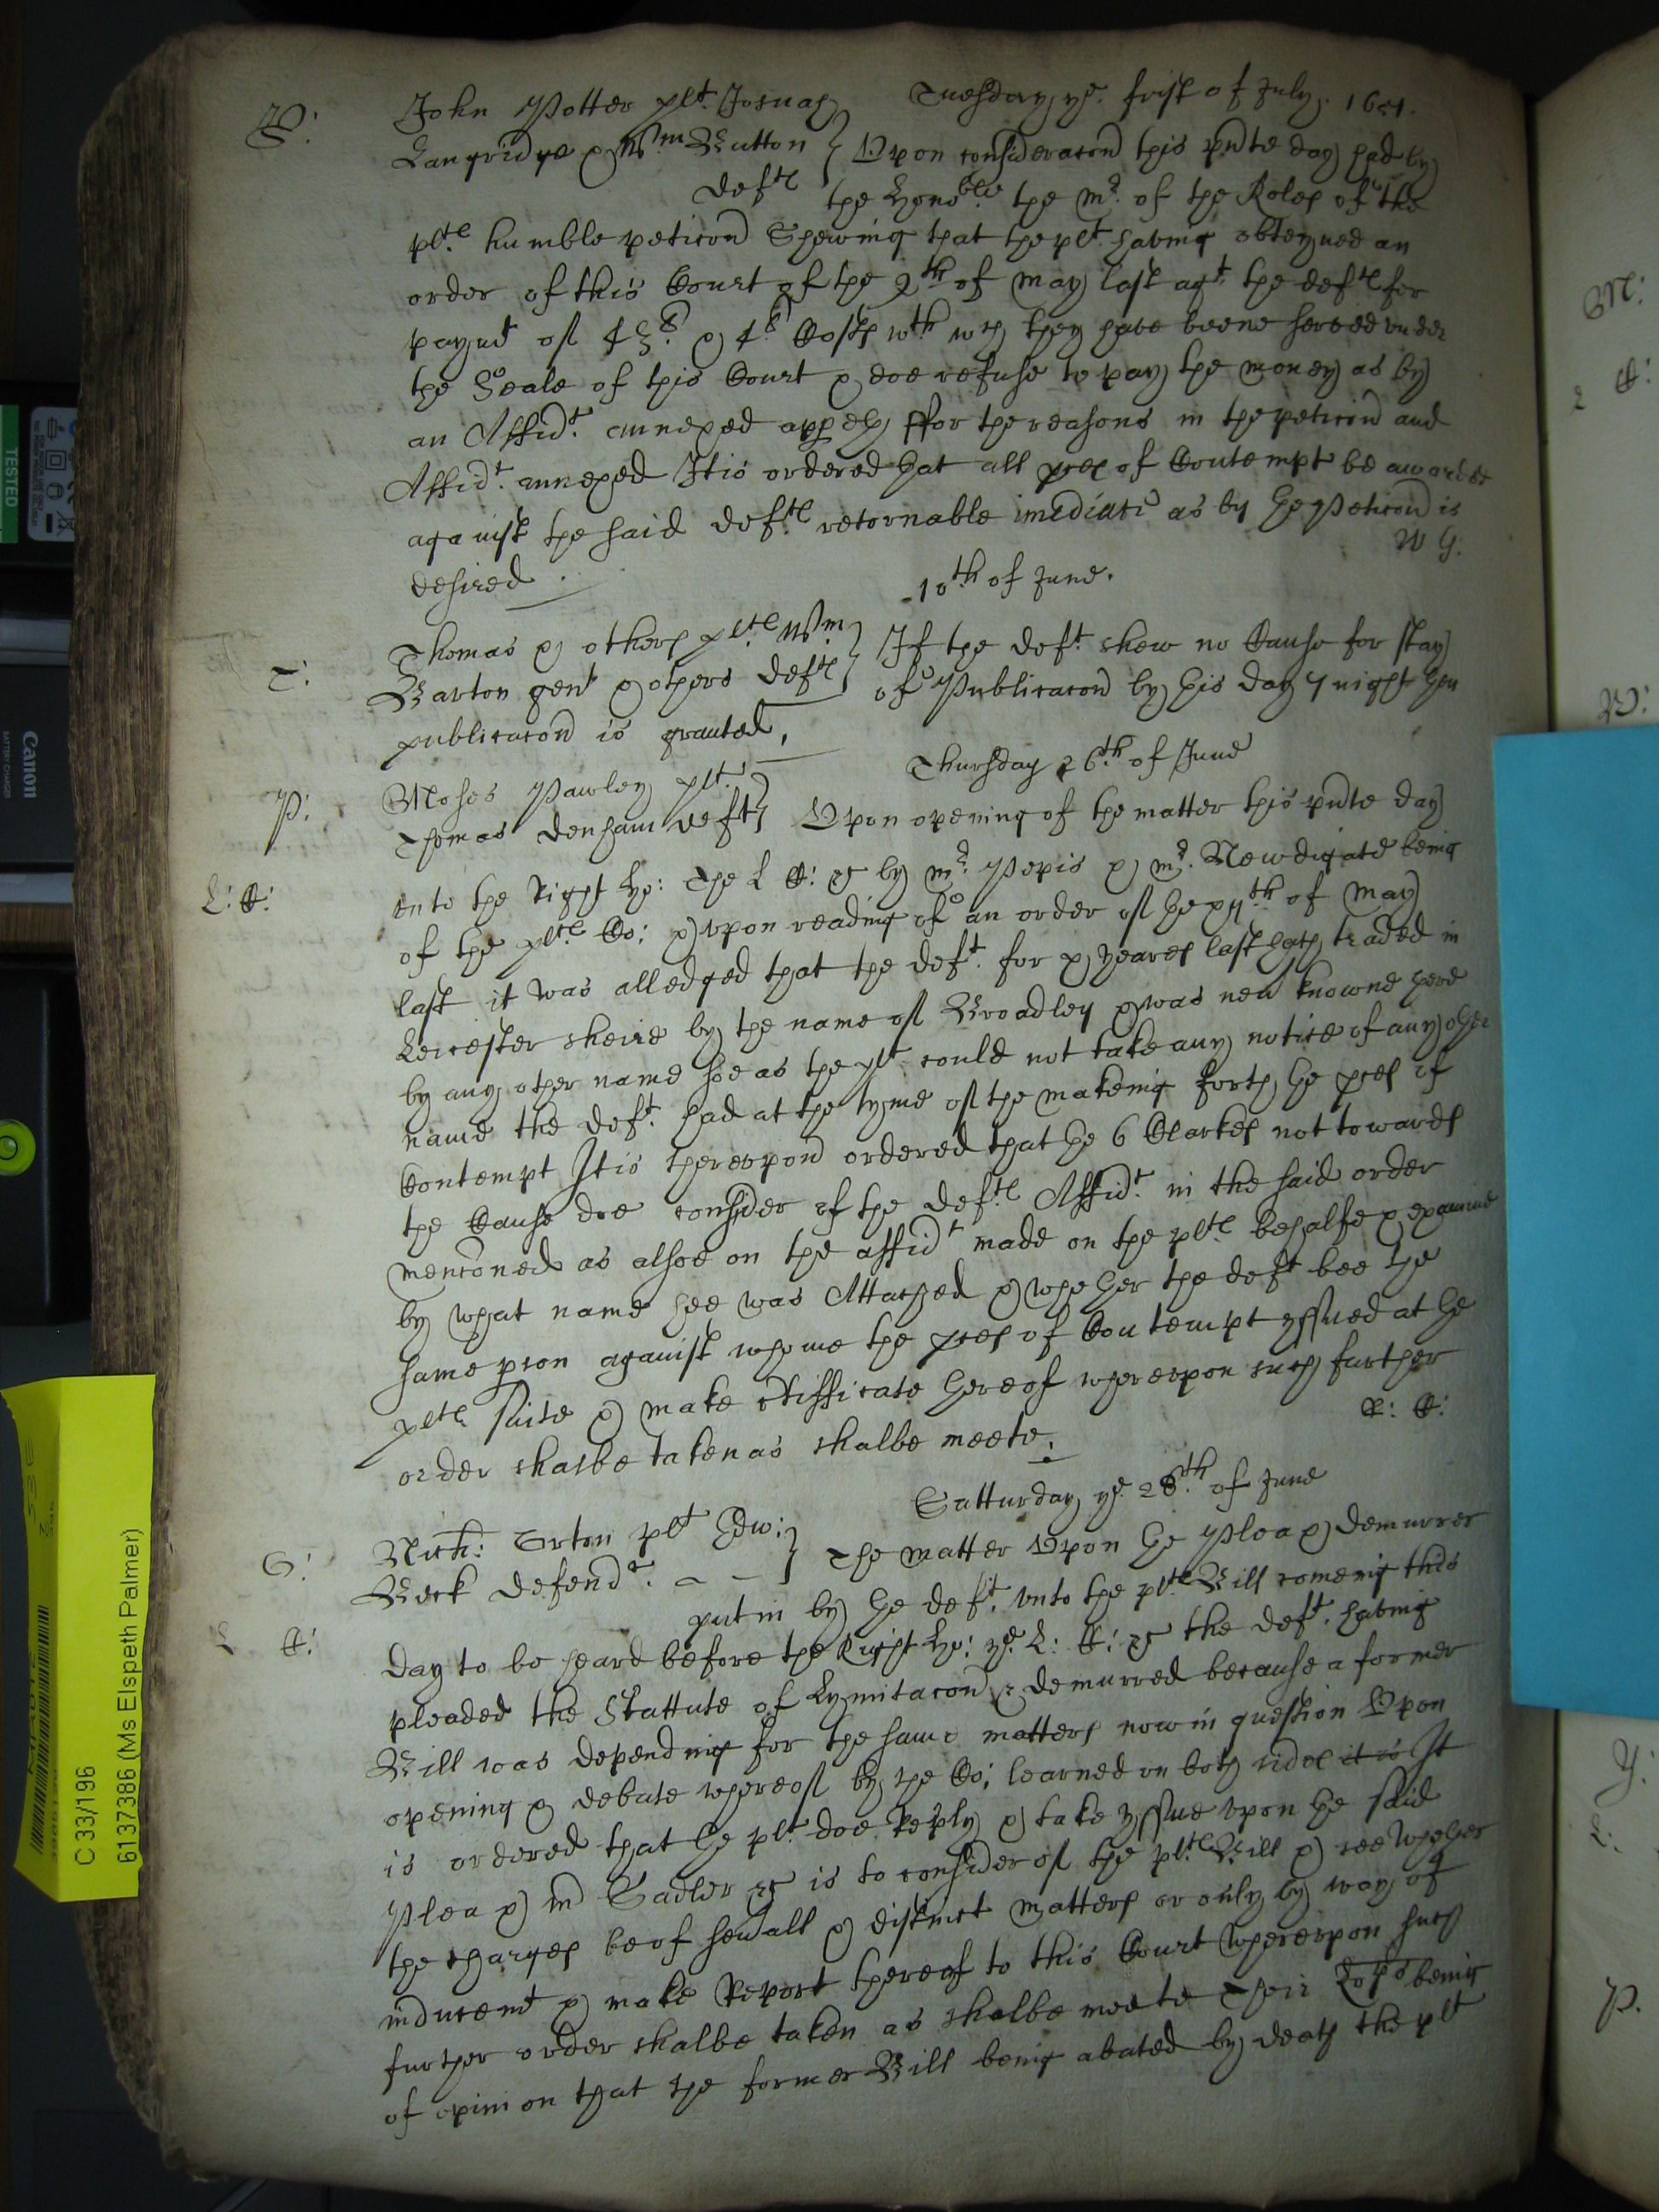 Tuesday ye. first of July. 1651.
P: John Potter plt. Josuah
Langridge & Wm Button } Upon consideracon this pnte day had by
deftℓ the Honoble. the mr. of the Roles of the
pltℓ humble peticon Shewing that the plt. having obteyned an
order of this Court of the 9th of May last agt. the deftℓ for
paymt of & 4s. Costs wth wch they have beene served under
the Seale of this Court & doe refuse to pay the money as by
an Affidt. annexed appeth ffor the reasons in the peticon and
Affidt. annexed It is ordered that all pces of Contempt be awarded
against the said deftℓ retornable imediate as by the Peticon is
desired. W G:
10th of June.
T: Thomas & others pltℓ Wm.
Barton gent & others deftℓ } If the deft. shew no Cause for stay
of Publicacon by this day 7 night then
publicacon is granted.
Thursday 26th of June
P: Moses Pawley plt.
Thomas Denham deft } Upon opening of the matter this pnte day
L: C: unto the Right Ho: The L C: &c by mr. Pepis & mr. Newdigate being
of the pltℓ Co: & upon reading of an order of the xijth of May
last it was alledged that the deft. for x yeares last hath traded in
Leicester sheire by the name of Broadley & was nev knowne there
by any other name soe as the plt could not take any notice of any other
name the deft. had at the tyme of the makeing forth the pces of
Contempt It is thereupon ordered that the 6 Clarkes not towards
the Cause doe consider of the deftℓ Affidt. in the said order
mencõned as alsoe on the affidt made on the pltℓ behalfe & examine
by what name hee was Attached & whether the deft bee the
same pson against whome the pces of Contempt yssued at the
pltℓ suite & make Ctifficate thereof whereupon such further
order shalbe taken as shalbe meete. R: C:
Satturday ye. 28th. of June
O: Nich: Orton plt Edw:
Beck Defendt. } The matter Upon the Plea & demurrer
put in by the deft. unto the pltℓ Bill comeing this
L C: day to be heard before the Right Ho: ye. L: C: &c the deft. having
pleaded the Stattute of Lymitacon & demurred because a former
Bill was depending for the same matters now in question Upon
opening & debate whereof by the Co: learned on both sides it is It
is ordered that the plt. doe reply & take yssue upon the said
Plea & mr Sadler &c is to consider of the pltℓ Bill & see whether
the charges be of sevall & distinct matters or only by way of
inducemt & make Report thereof to this Court whereupon such
further order shalbe taken as shalbe meete Their Lopps being
of opinion that the former Bill being abated by death the plt
TESTED
Canon
BATTERY CHARGER
C 33/196
6137386 (Ms Elspeth Palmer)